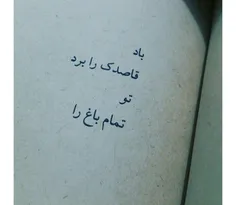 باد
قاصدک را برد
تو
تمام باغ را